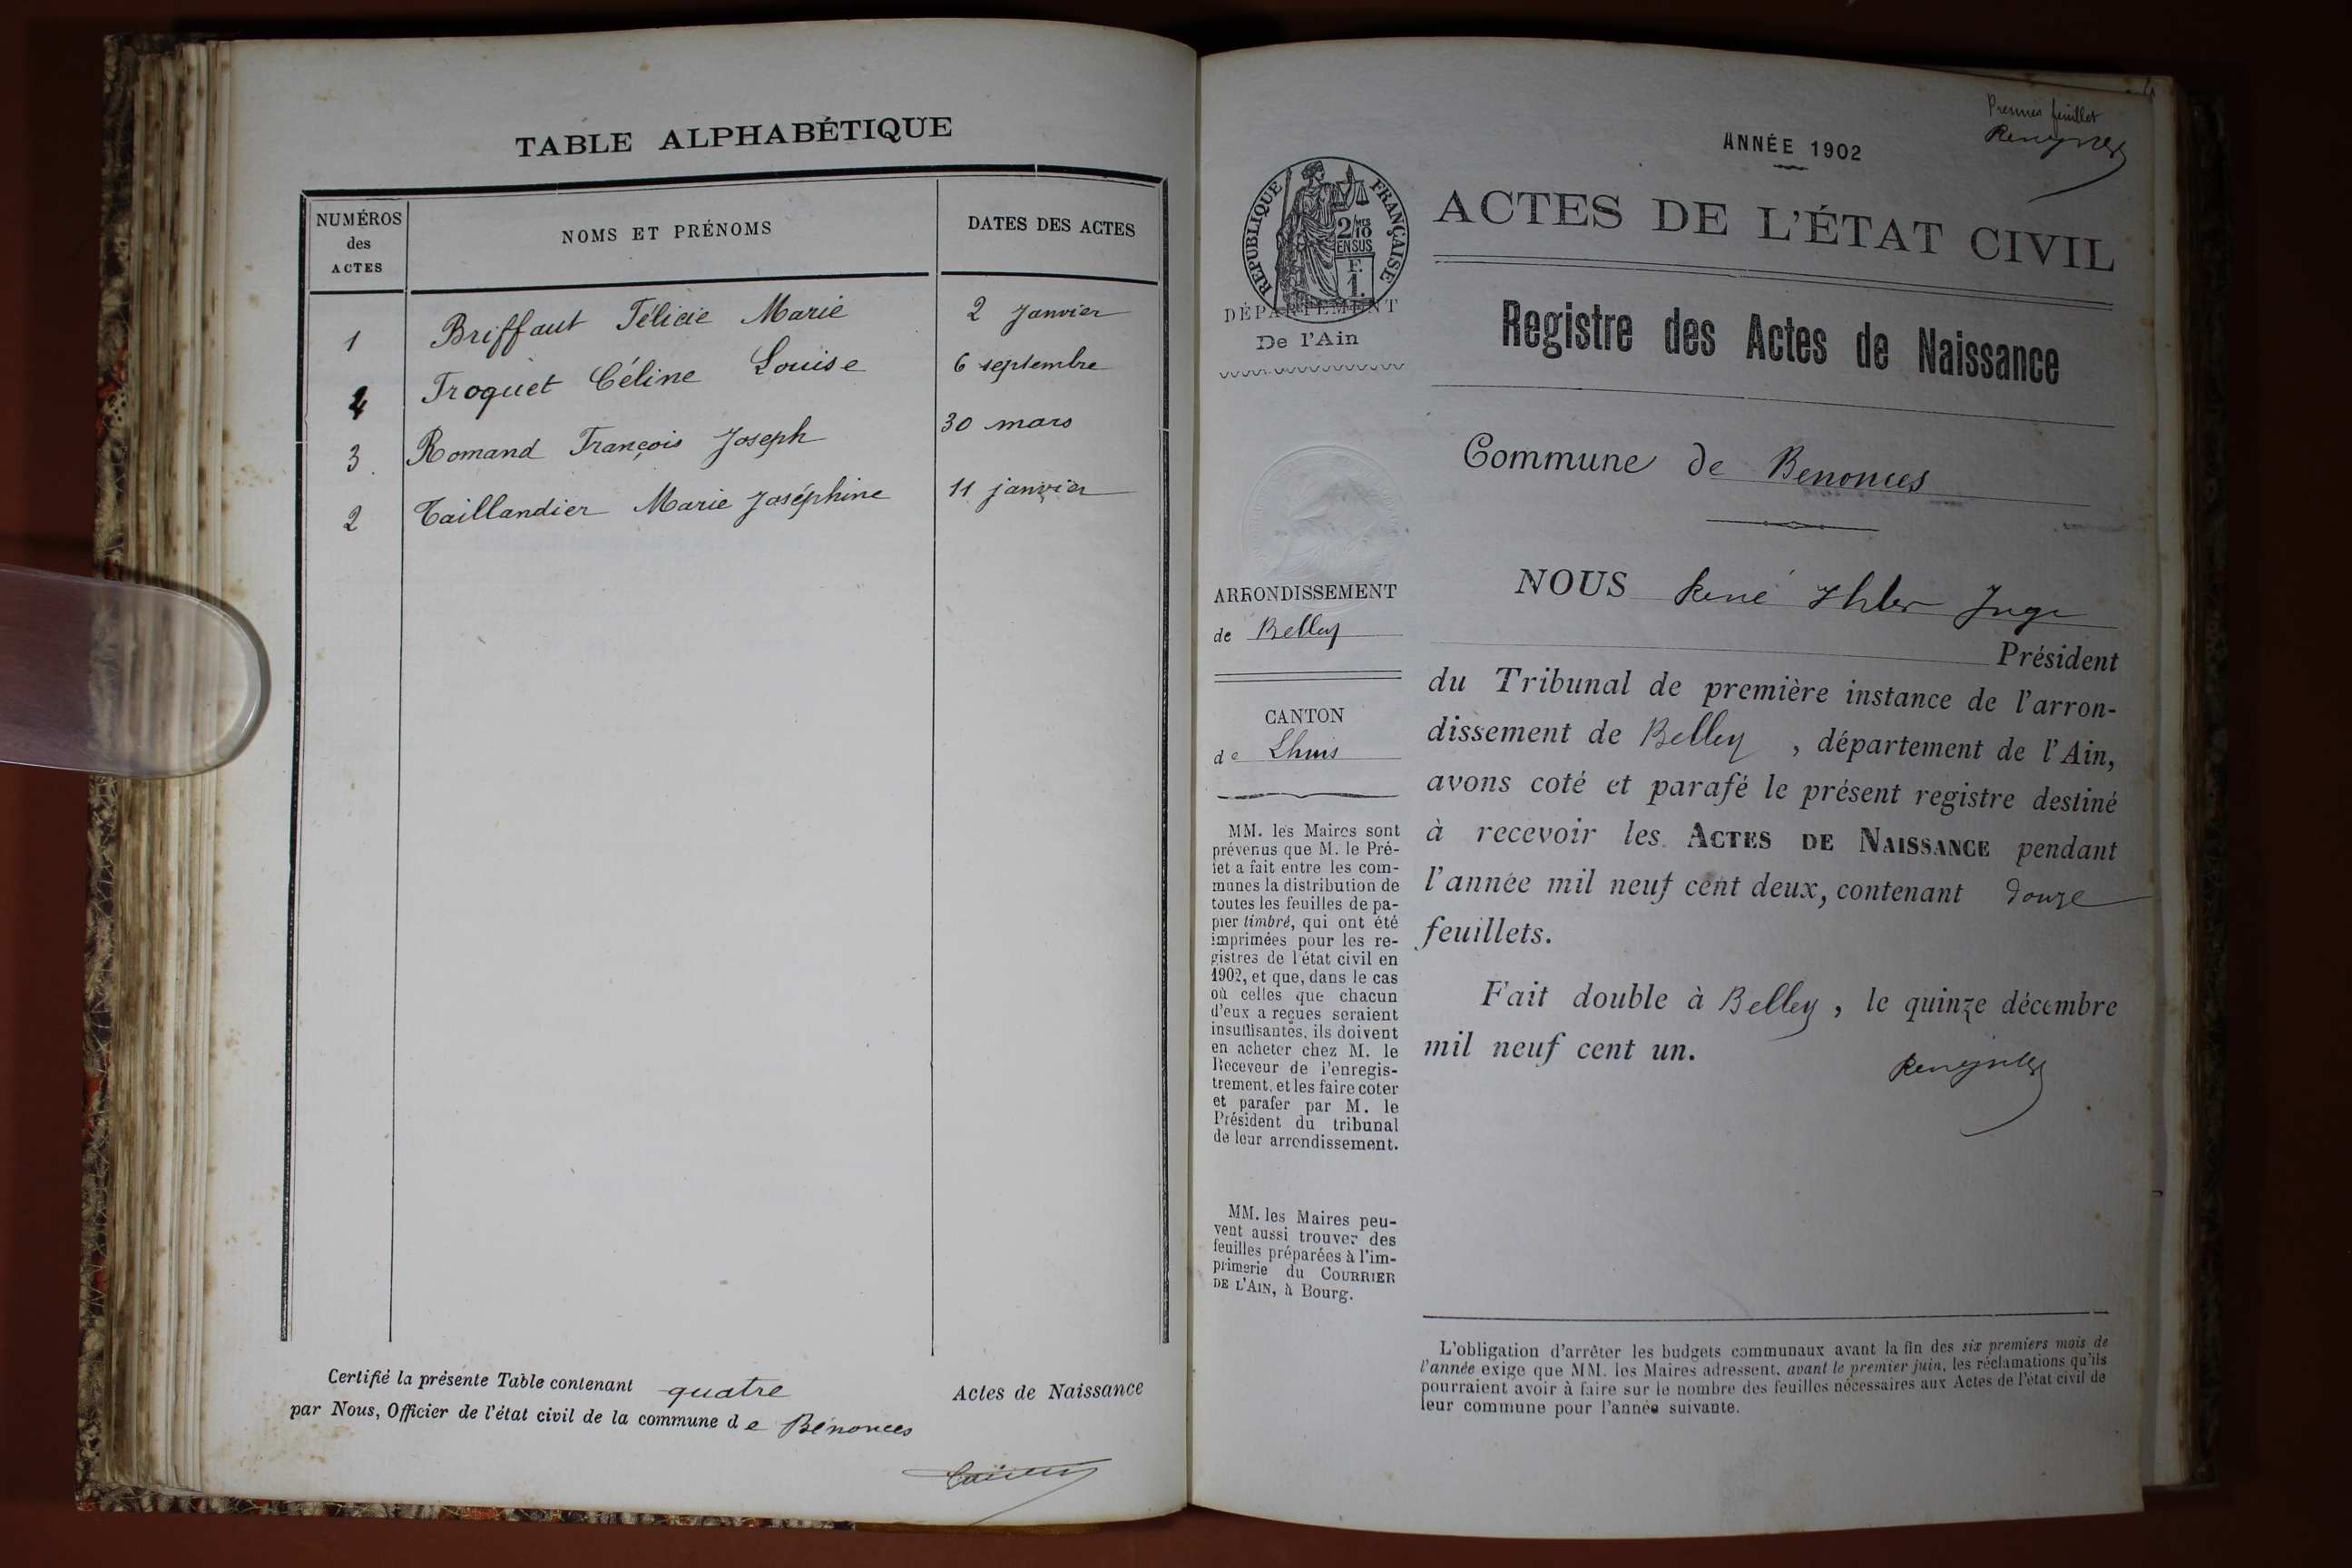 TABLE ALPHABÉTIQUE
NUMÉROS des ACTES
NOMS ET PRÉNOMS
DATES DES ACTES
1 Briffaut Félicie Marie 2 janvier
4 Froquet Céline Louise 6 septembre
3 Romand François Joseph 30 mars
2 Taillandier Marie Joséphine 11 janvier
Certifié la présente Table contenant quatre Actes de Naissance
par Nous, Officier de l'état civil de la commune de Bénonces
Premier feuillet
ANNÉE 1902
RÉPUBLIQUE FRANÇAISE
2/10 MES
EN SUS
F.
1.
ACTES DE L'ÉTAT CIVIL
DÉPARTEMENT
De l'Ain
Registre des Actes de Naissance
Commune de Benonces
ARRONDISSEMENT
de Belley
CANTON
de Lhuis
MM. les Maires sont
prévenus que M. le Pré-
fet a fait entre les com-
munes la distribution de
toutes les feuilles de pa-
pier timbré, qui ont été
imprimées pour les re-
gistres de l'état civil en
1902, et que, dans le cas
où celles que chacun
d'eux a reçues seraient
insuffisantes, ils doivent
en acheter chez M. le
Receveur de l'enregis-
trement, et les faire coter
et parafer par M. le
Président du tribunal
de leur arrondissement.
MM. les Maires peu-
vent aussi trouver des
feuilles préparées à l'im-
primerie du COURRIER
DE L'AIN, à Bourg.
NOUS René Ihler Juge
Président
du Tribunal de première instance de l'arron-
dissement de Belley, département de l'Ain,
avons coté et parafé le présent registre destiné
à recevoir les ACTES DE NAISSANCE pendant
l'année mil neuf cent deux, contenant douze
feuillets.
Fait double à Belley, le quinze décembre
mil neuf cent un.
L'obligation d'arrêter les budgets communaux avant la fin des six premiers mois de
l'année exige que MM. les Maires adressent, avant le premier juin, les réclamations qu'ils
pourraient avoir à faire sur le nombre des feuilles nécessaires aux Actes de l'état civil de
leur commune pour l'année suivante.